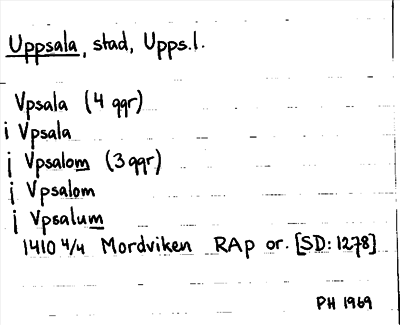 Uppsala, stad, Upps.l.
Vpsala (4 ggr)
i Vpsala
j Vpsalom (3 ggr)
j Vpsalom
j Vpsalum
1410 4/4 Mordviken RAp or. [SD: 1278]
PH 1969